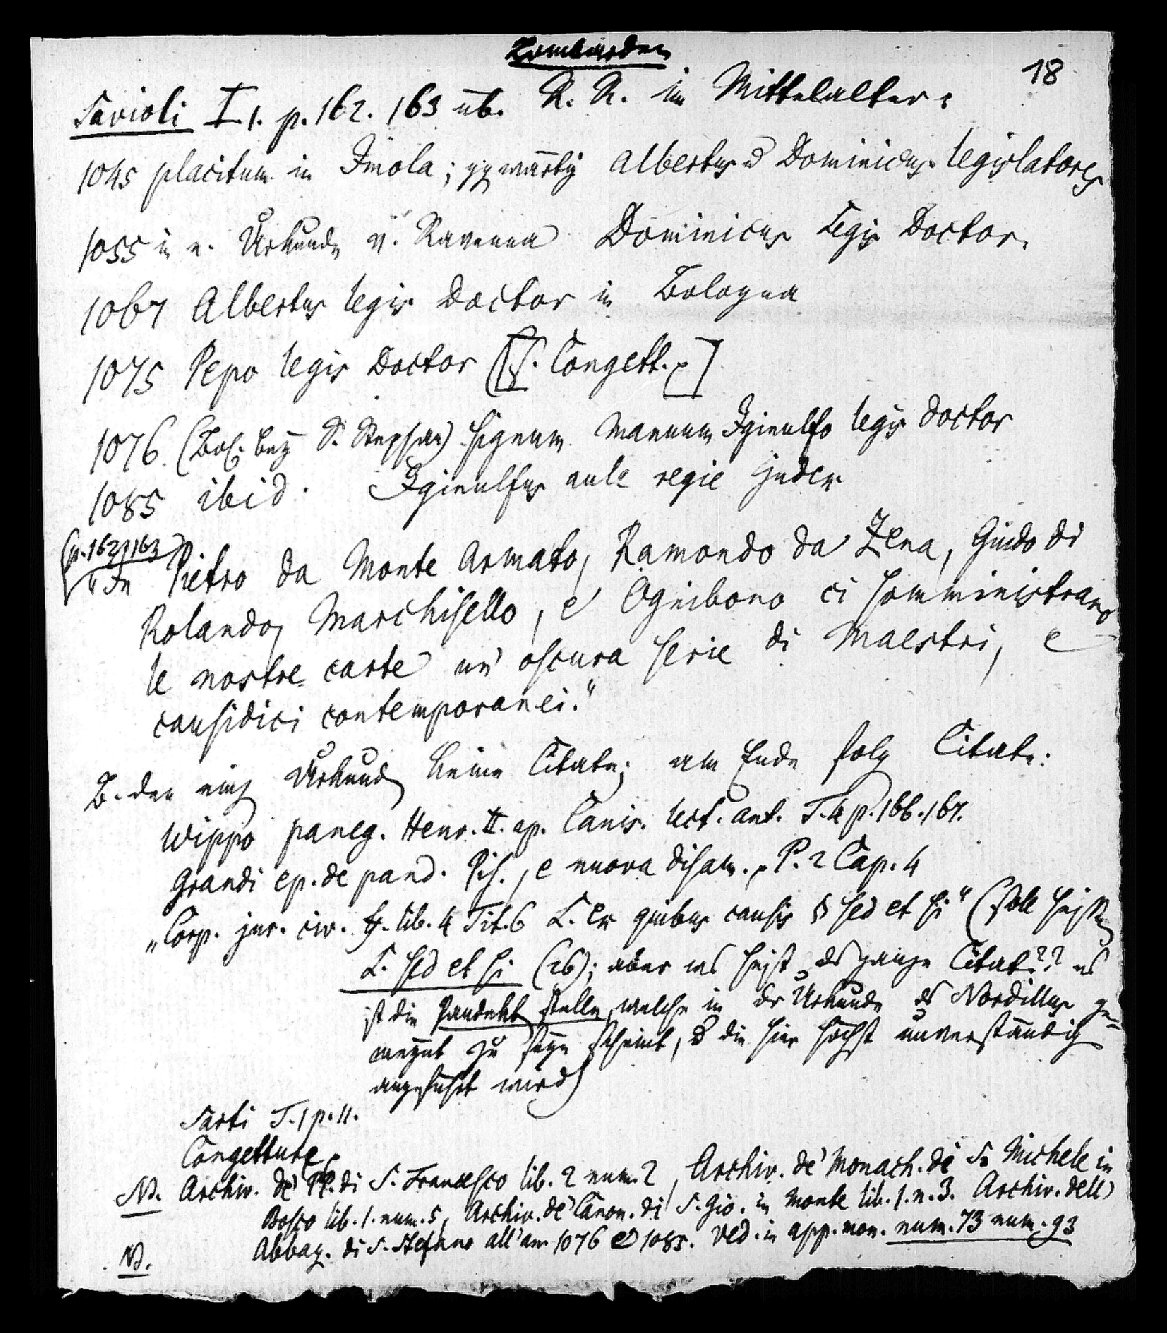 Lombarden
18
Savioli I 1. p. 162. 163 üb. R. R. im Mittelalter:
1045 placitum in Imola; ggwärtig Albertus u Dominicus legislatores
1055 in e. Urkunde v. Ravenna Dominicus Legis Doctor.
1067 Albertus legis Doctor in Bologna
1075 Pepo legis Doctor [s. Congett.]
1076 (Bol. bey S. Stephan) signum manuum Iginulfo legis doctor
1085 ibid. Iginulfus aule regie judex
(p. 162, 163)
"In Pietro da Monte Armato, Ramondo da Zena, Guido di
Rolando, Marchisello, e Ognibono ci somministrano
le nostre carte un' oscura serie di Maestri, e
causidici contemporanei."
Bei den Urkunden keine Citate; am Ende folg Citate:
Wippo paneg. Henr. II. ap. Canis. lect. ant. T. 4 p. 166. 167.
Grandi ep. de pand. Pis., e nuova disam. P. 2 Cap. 4
"Corp. jur. civ. ff. lib. 4 Tit. 6 L. Ex quibus causis § sed et si" (soll heißen
L. sed et si (26); aber was heißt das ganze Citat?? es
ist die Pandektstelle, welche in der Urkunde des Nordillus ge-
meynt zu seyn scheint, u die hier höchst unverständig
angeführt wird)
Sarti T. 1 p. 11.
Congetture
NB. Archiv. de' PP. di S. Francesco lib. 2 num. 2, Archiv. de' Monach. di S. Michele in
Bosco lib. 1. num. 5, Archiv. de' Canon. di S. Gio. in Monte lib. 1. n. 3. Archiv. dell'
NB. Abbaz. di S. Stefano all' an. 1076 e 1085. Ved. in app. mon. num. 73 num. 93